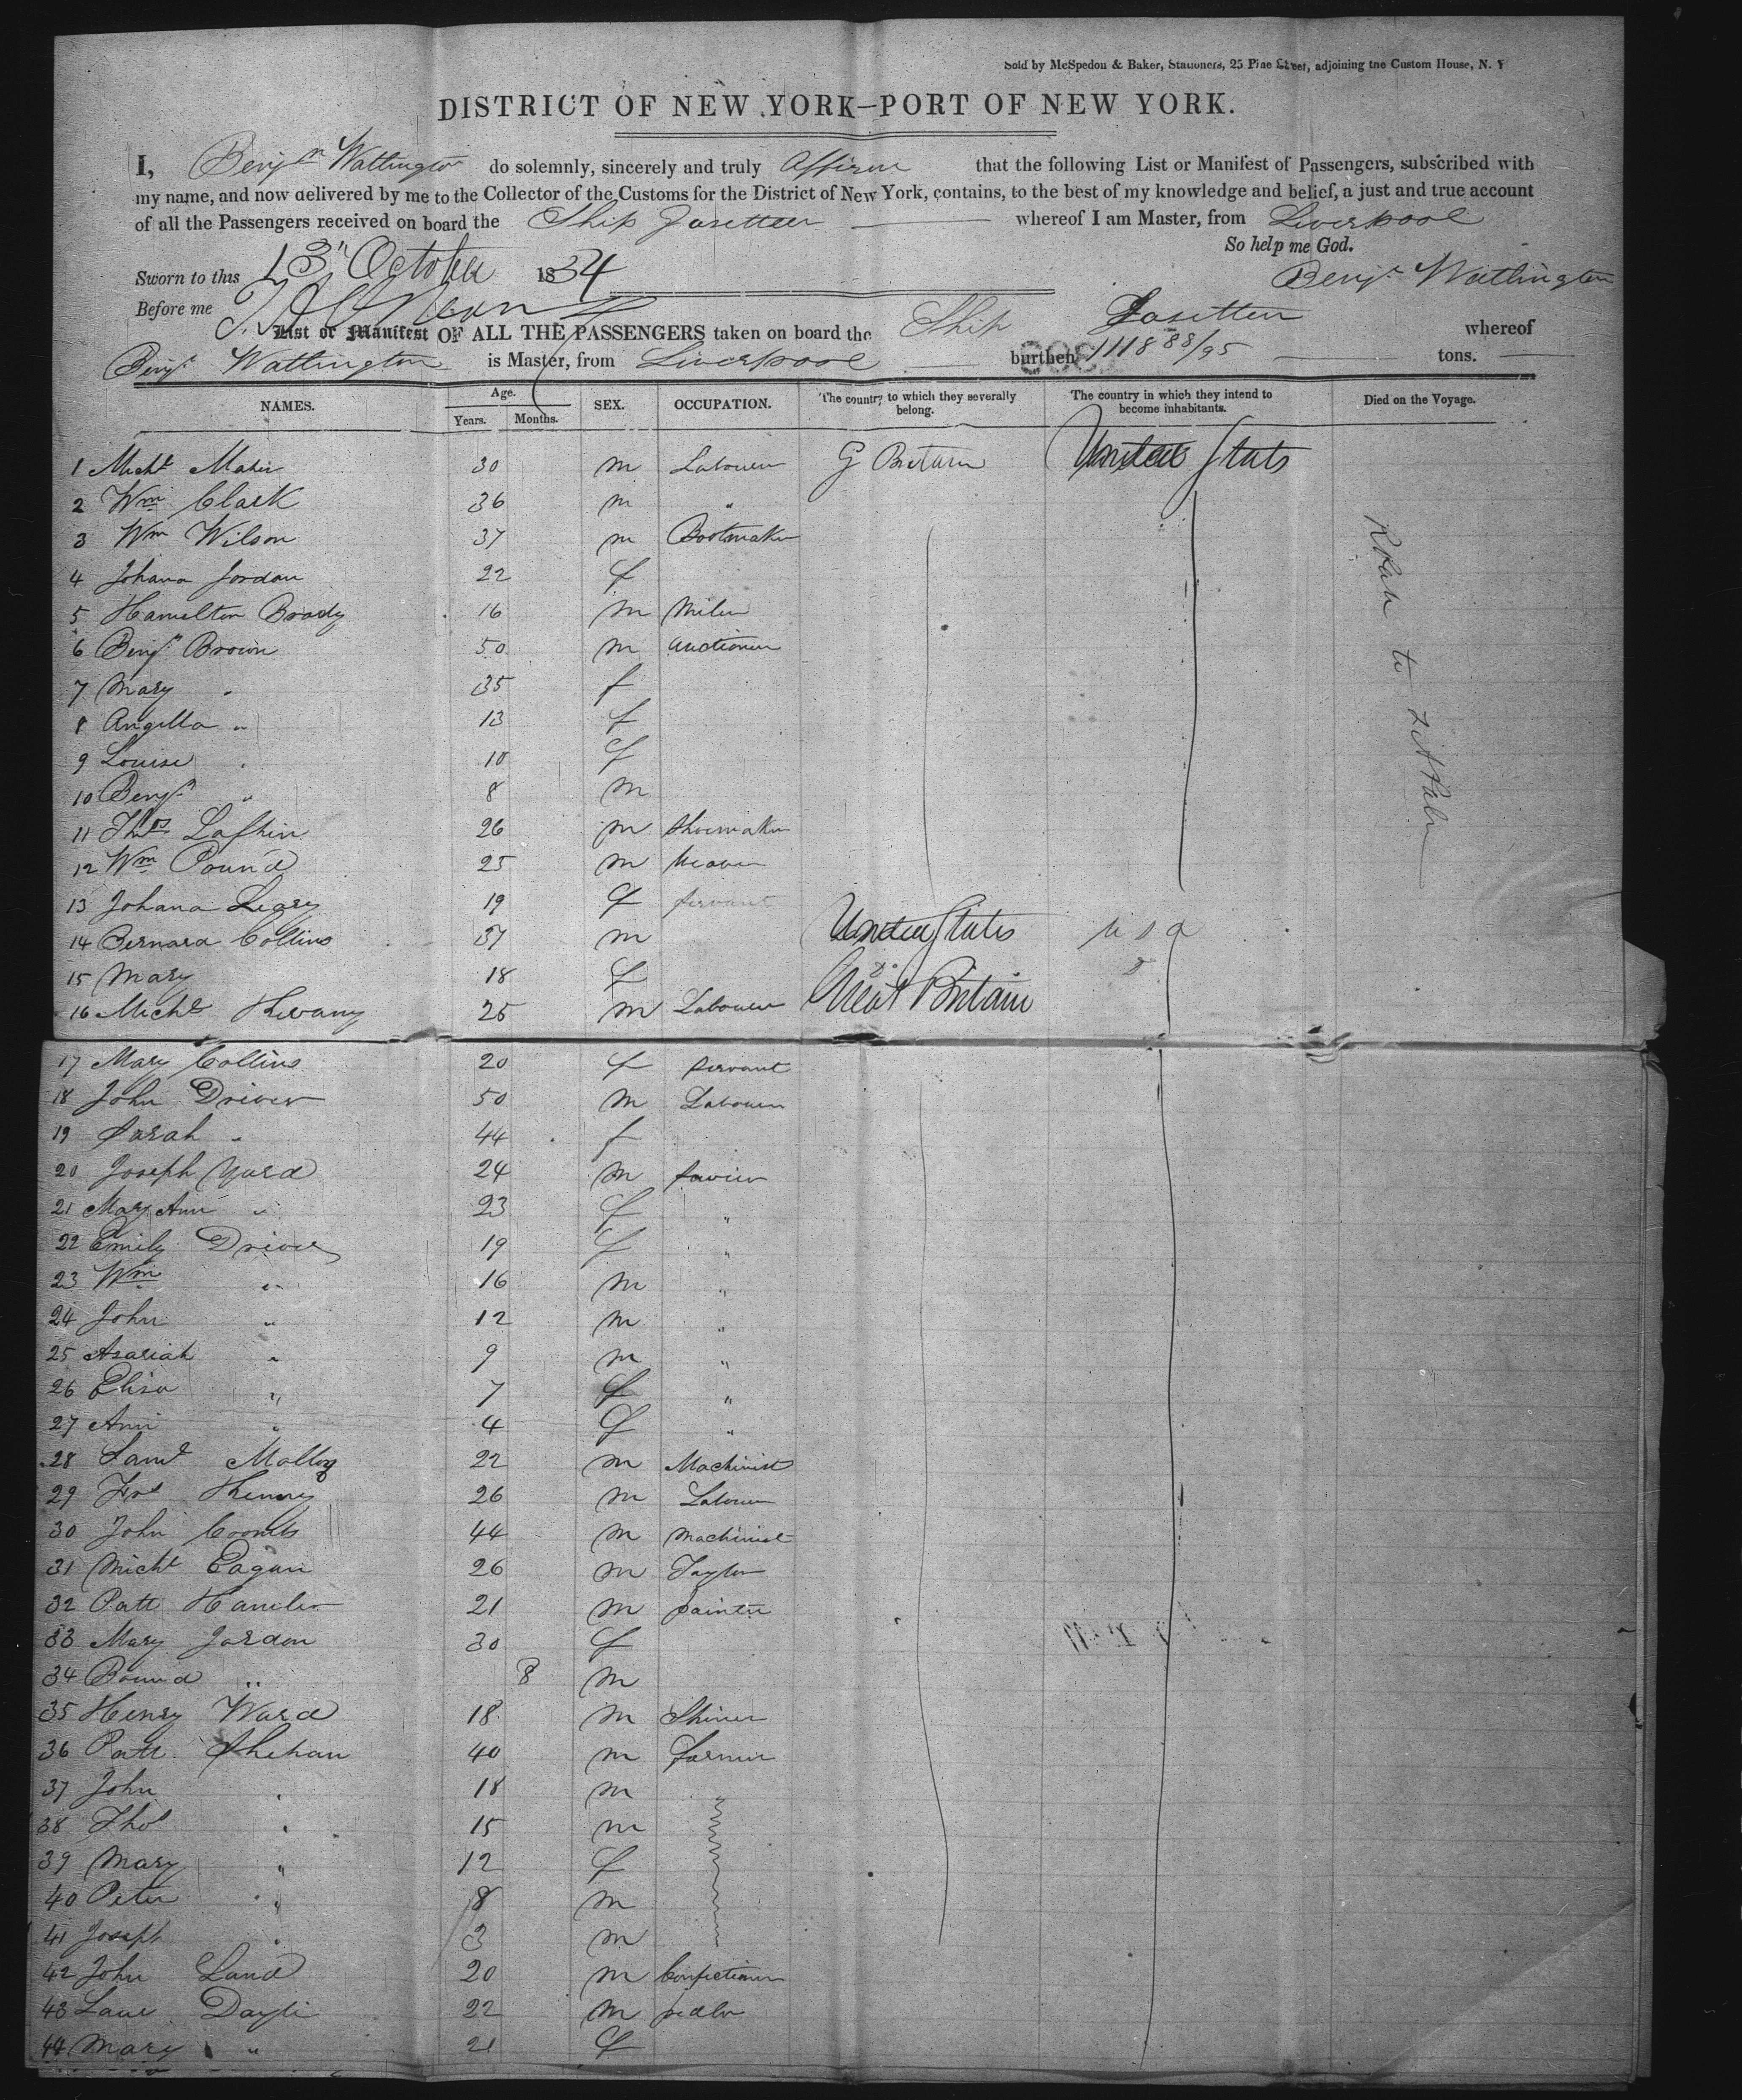 Sold by McSpedon & Baker, Stationers, 25 Pine Street, adjoining the Custom House, N. Y
DISTRICT OF NEW YORK—PORT OF NEW YORK.
I, Benjn Wattington do solemnly, sincerely and truly affirm that the following List or Manifest of Passengers, subscribed with
my name, and now delivered by me to the Collector of the Customs for the District of New York, contains, to the best of my knowledge and belief, a just and true account
of all the Passengers received on board the Ship whereof I am Master, from Liverpool
So help me God.
Sworn to this 13 October 1834 Benjn Watlington
Before me
List or Manifest OF ALL THE PASSENGERS taken on board the Ship whereof
Benjn Wattington is Master, from Liverpool burthen 1118 88/95 tons.
NAMES. Age. Years. Months. SEX. OCCUPATION. The country to which they severally belong. The country in which they intend to become inhabitants. Died on the Voyage.
1 Michl Maher 30 m Labourer G Britain United States
2 Wm Clark 36 m "
3 Wm Wilson 37 m Bootmaker
4 Johana Jordan 22 f
5 Hamelton Brady 16 m
6 Benjn Brown 50 m Auctioneer
7 Mary " 35 f
8 Angella " 13 f
9 Louise " 10 f
10 Benjn " 8 m
11 Thos Laffin 26 m Shoemaker
12 Wm Pound 25 m Weaver
13 Johana Leary 19 f servant
14 Bernard Collins 37 m United States u s a
15 Mary 18 f Do
16 Michl 25 m Labourer Great Britain
17 Mary Collins 20 f servant
18 John Driver 50 m Labourer
19 Sarah " 44 f
20 Joseph Yard 24 m
21 Mary Ann " 23 f "
22 Emily Driver 19 f "
23 Wm " 16 m "
24 John " 12 m "
25 Azariah " 9 m "
26 Eliza " 7 f "
27 Ann " 4 f "
28 Saml Malloy 22 m Machinist
29 26 m Labourer
30 John Coombs 44 m Machinist
31 Michl Eagan 26 m Taylor
32 Patt Hanlen 21 m painter
33 Mary Jordan 30 f
34 " 8 m
35 Henry Ward 18 m
36 Patt Shehan 40 m Farmer
37 John " 18 m
38 Thos " 15 m
39 Mary " 12 f
40 Peter " 8 m
41 Joseph " 3 m
42 John Land 20 m Confectioner
43 22 m pedlar
44 Mary " 21 f